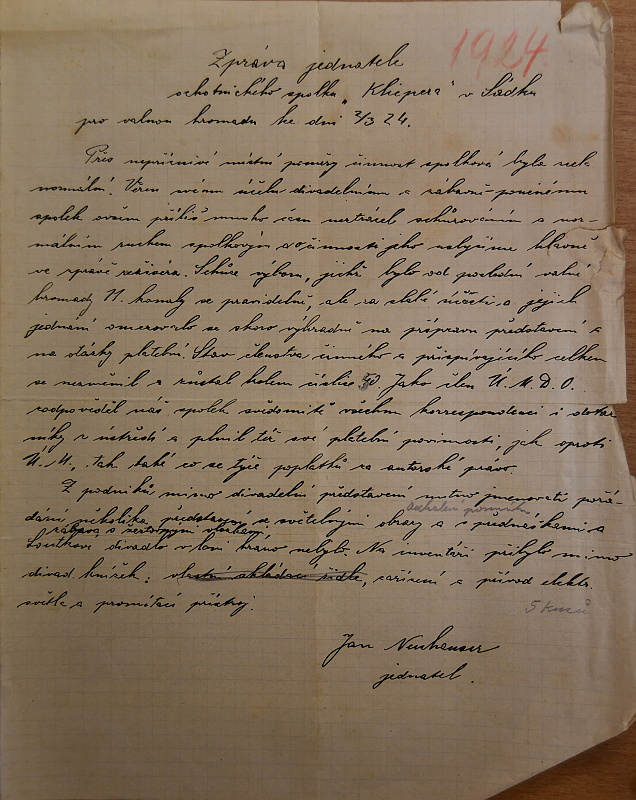 1924
Zpráva jednatele
ochotnického spolku „Klicpera" v Sádku
pro valnou hromadu ke dni 2/3 24.
Přes nepříznivé místní poměry činnost spolková byla celk.
normální. Věren svému účelu divadelnímu a zábavně-poučnému
spolek ovšem příliš mnoho času neztrácel schůzováním a nor-
málním ruchem spolkovým a o činnosti jeho uslyšíme hlavně
ve zprávě režiséra. Schůze výboru, jichž bylo od poslední valné
hromady 11. konaly se pravidelně, ale za slabé účasti a jejich
jednání omezovalo se skoro výhradně na přípravu představení a
na otázky platební. Stav členstva činného a přispívajícího celkem
se nezměnil a zůstal kolem číslice 50. Jako člen Ú. M. D. O.
zodpověděl náš spolek svědomitě všechnu korrespondenci i dotaz
níky z ústředí a plnil též své platební povinnosti, jak oproti
Ú. M., tak také co se týče poplatků za autorské právo.
Z podniků mimo divadelní představení nutno jmenovati pořá-
odhalení pomníku
dání několika představ se světelnými obrazy a s přednáškami a
zábava s žertovnými
Loutkové divadlo vloni hráno nebylo. Na inventáři přibylo mimo
divad. knížek: vlastní skládací židle, zařízení a přívod elektr.
světla a promítací přístroj.
5 kusů
Jan Neuheuser
jednatel.